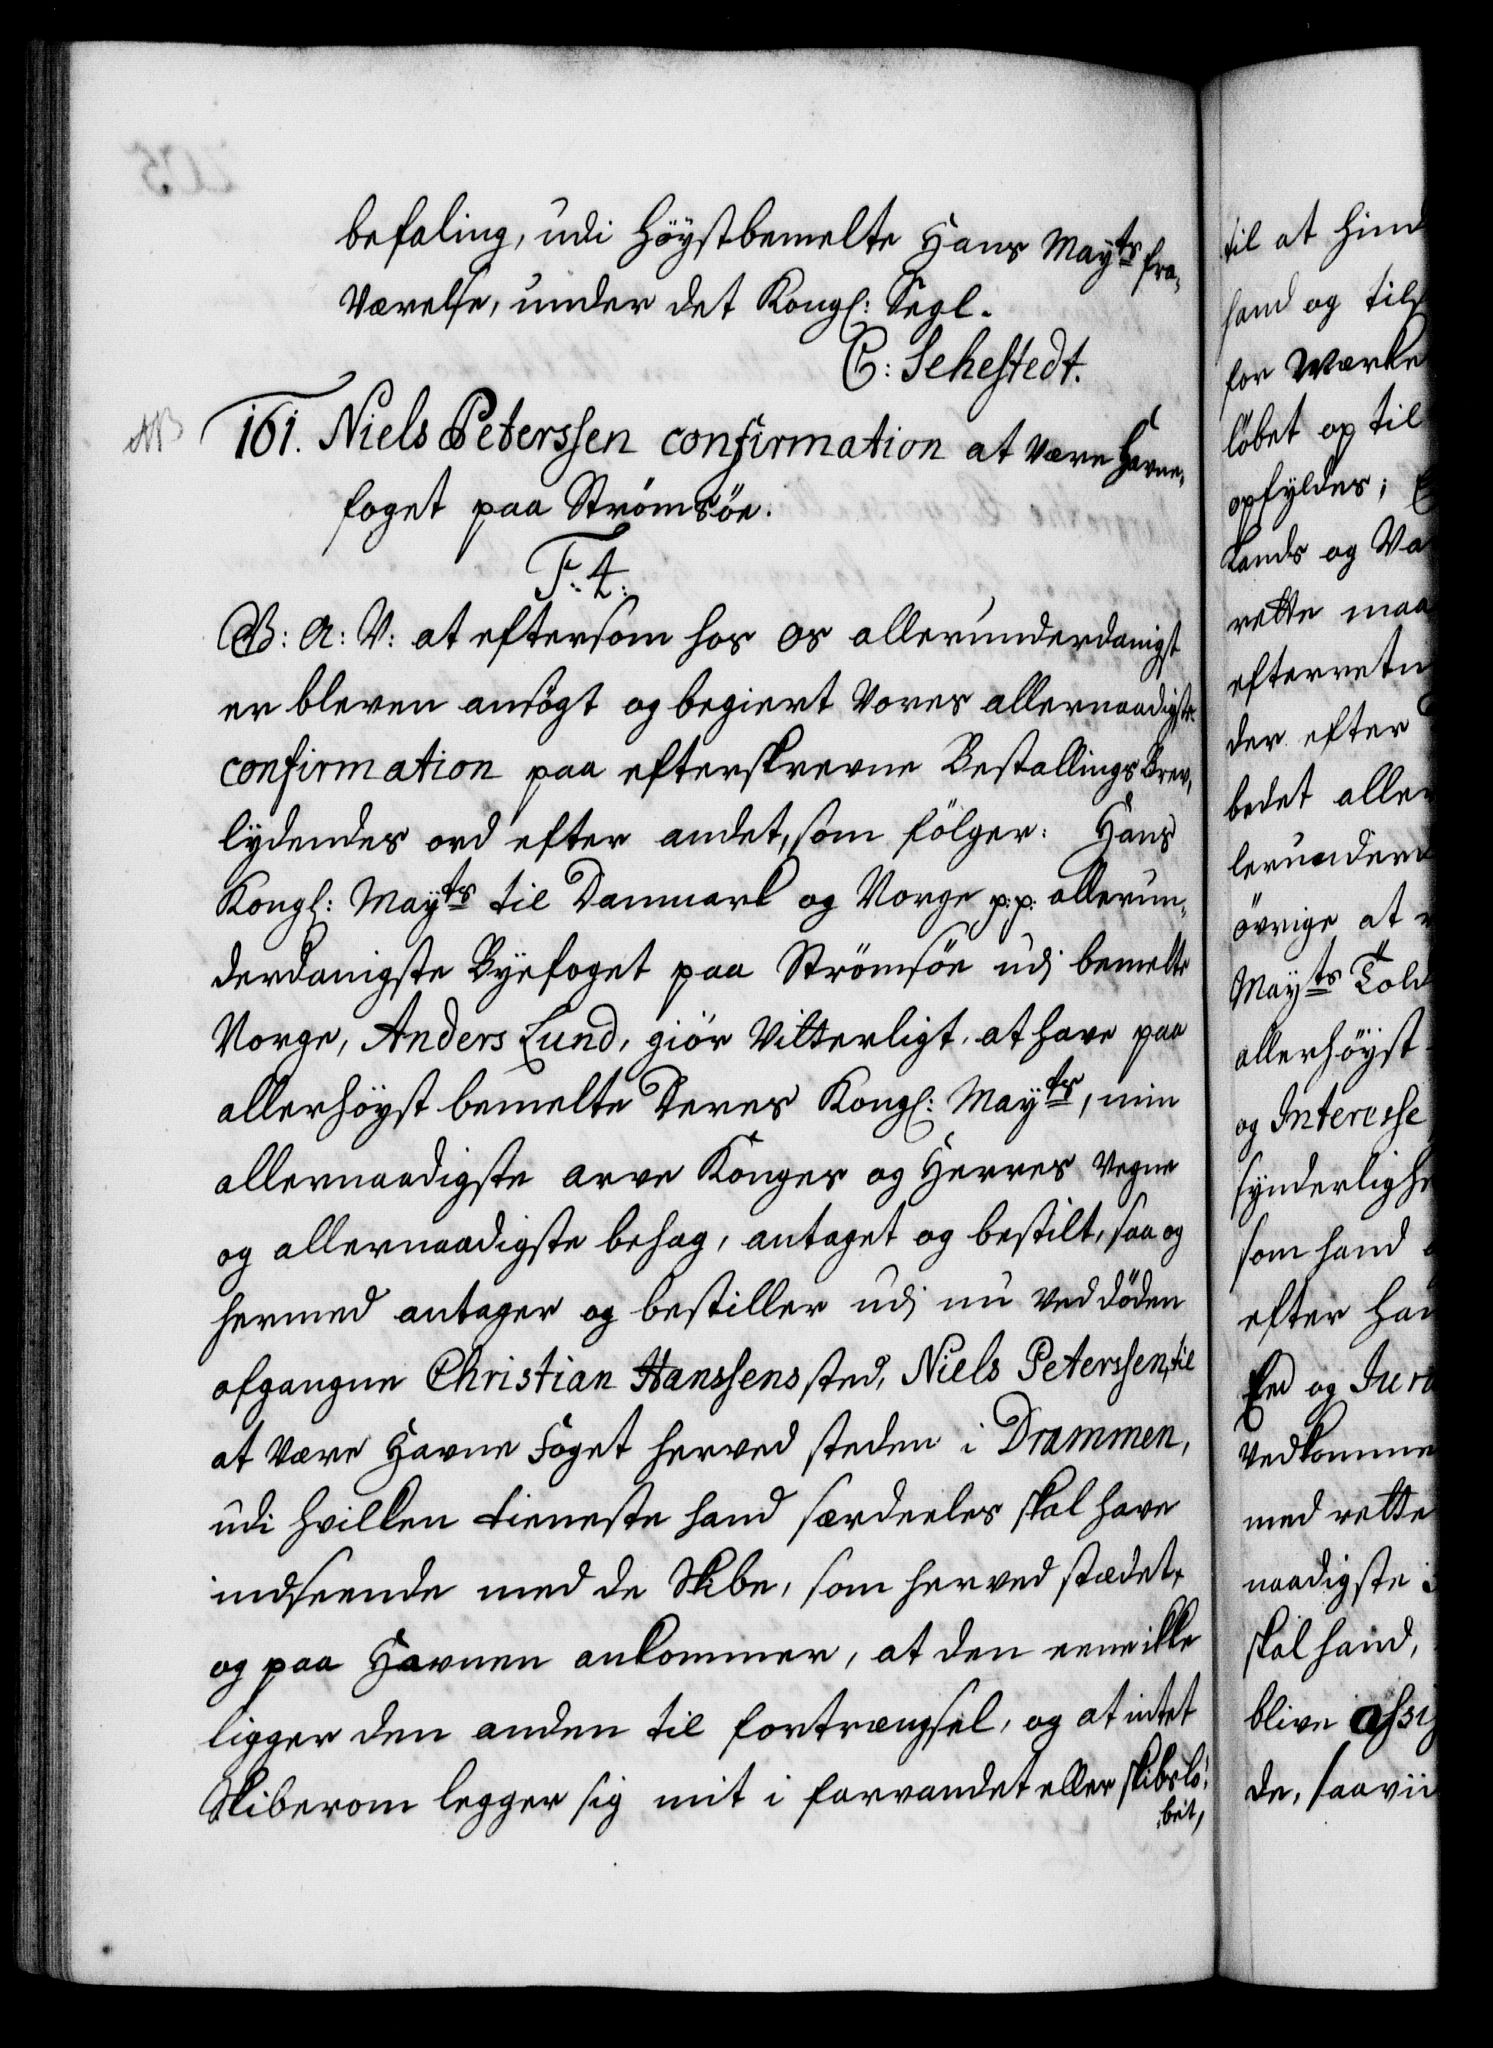 befaling, udi höystbemelte Hans Mayts fra-
Værelse, under det Kongl: Segl.
C: Sehestedt.
NB 161. Niels Peterssen confirmation at være Havne-
foget paa Strømsöe.
F. 4.
G: A: V: at eftersom hos os allerunderdanigst
er bleven ansögt og begiert Vores allernaadigste
confirmation paa efterskrevne Bestallings Brev,
lydendes ord efter andet, som fölger: Hans
Kongl: Mayts til Danmark og Norge p:p: allerun-
derdanigste Byefoget paa Strömsöe udj bemelte
Norge, Anders Lund, giör Vitterligt, at have paa
allerhöyst bemelte Deres Kongl: Mayts, min
allernaadigste arve Konges og Herres Vegne
og allernaadigste behag, antaget og bestilt, saa og
hermed antager og bestiller udj nu ved döden
afgangne Christian Hanssens sted, Niels Peterssen, til
at være Havne Foget herved steden i Drammen,
udi hvilken tieneste hand særdeeles skal have
indseende med de Skibe, som herved stædet,
og paa Havnen ankommer, at den eene ikke
ligger den anden til fortrængsel, og at intet
Skiberom legger sig mit i farvandet eller skibslö-
bet,
til at hind
hand og tils
for Værke
löbet op til
opfyldes;
Lands og Va
rette maa
efterretn
der efter
bedet aller
lerunderd
övrige at
Mayts Told
allerhöyst
og Interesse
synderlighe
som hand
efter han
Eed og Jura
Vedkomme
med rette
naadigste
skal hand,
blive assig
de, saavii